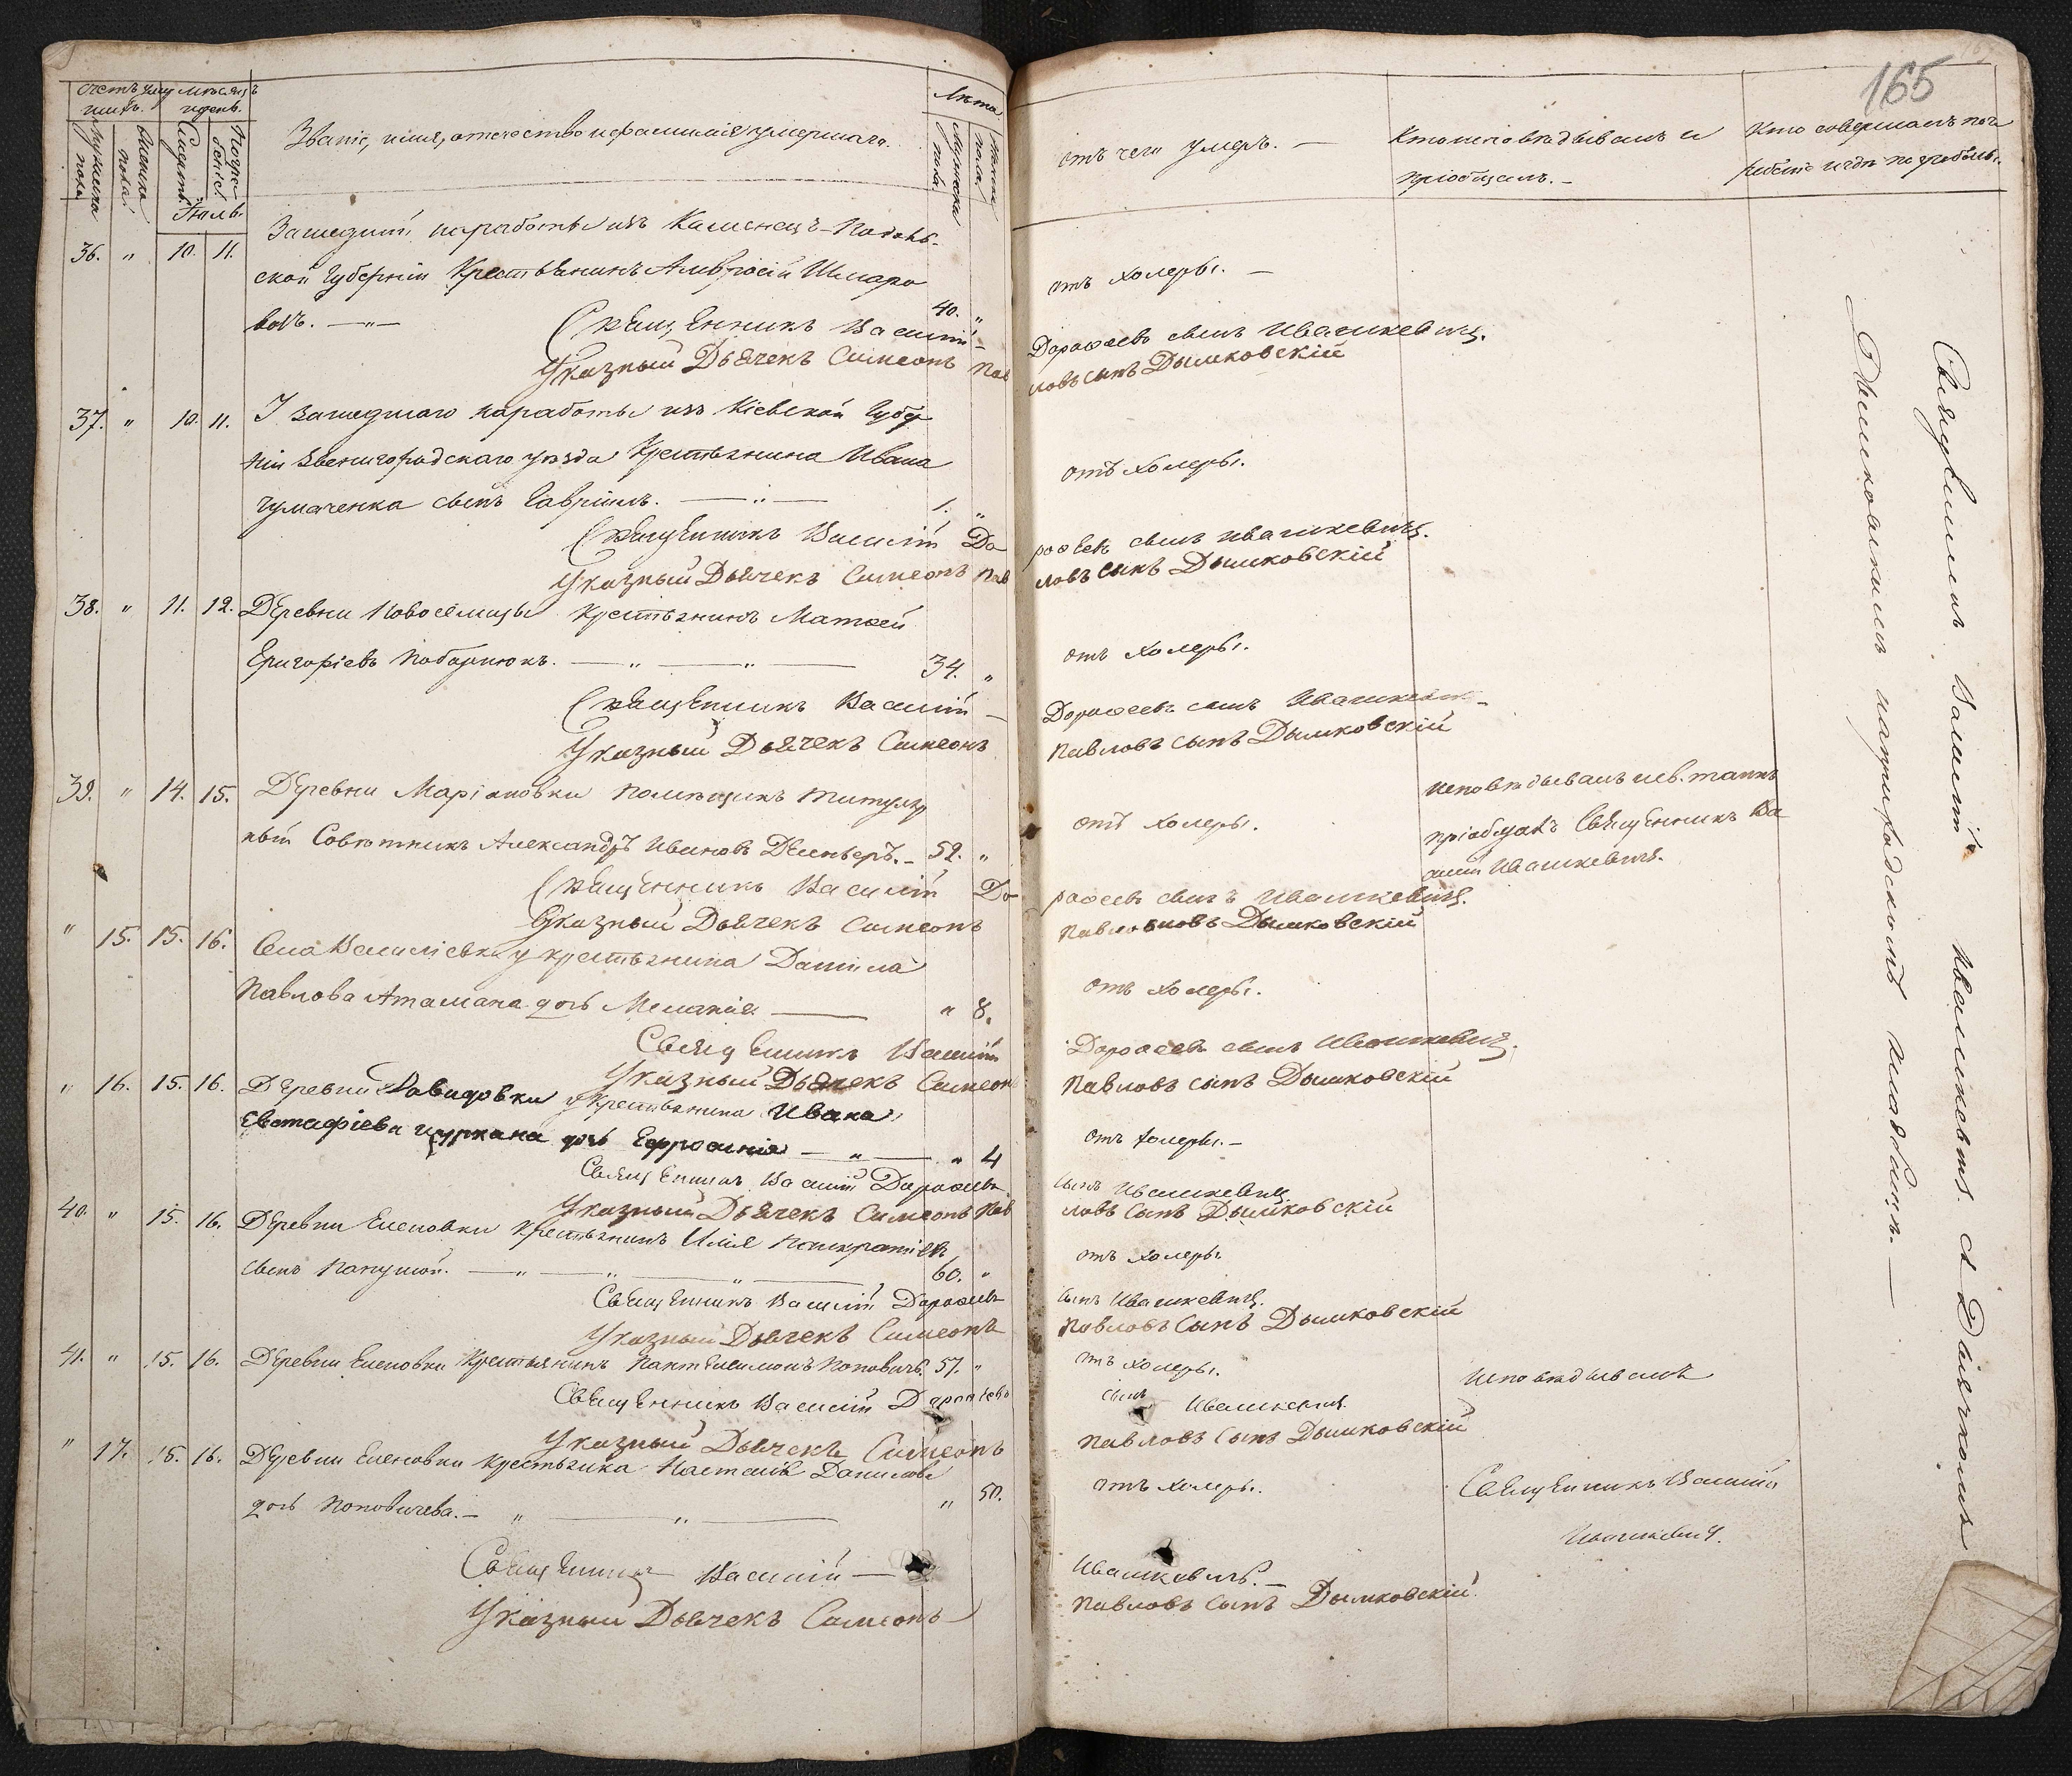 165
Счетъ умершихъ.
Мѣсяцъ и день.
Мужеска пола.
Женска пола.
Смерть.
Погребеніе.
Званіе, имя, отечество и фамилія умершаго.
Лѣта
Мужеска пола.
Женска пола.
отъ чего умеръ. —
Кто исповѣдывалъ и
пріобщалъ. —
Кто совершалъ погребеніе и гдѣ погребены.
Іюль.
36. " 10. 11. Зашедшій на работы изъ Каменецъ-Подоль-
ской Губерніи Крестьянинъ Амвросій Шмаро
возъ. — " — 40. " отъ холеры. —
Священникъ Василій — Дороѳеевъ сынъ Ивашкевичъ.
Указный Дьячекъ Симеонъ Павловъ сынъ Дымковскій
37. " 10. 11. У зашедшаго на работы изъ Кіевской Губер
ніи Звенигородскаго уѣзда Крестьянина Ивана
Чумаченка сынъ Гавріилъ. — " — 1. " отъ холеры.
Священникъ Василій Дороѳеевъ сынъ Ивашкевичъ.
Указный Дьячекъ Симеонъ Павловъ сынъ Дымковскій
38. " 11. 12. Деревни Новоселицы Крестьянинъ Матѳей
Григоріевъ Побарнюкъ. — " — " — 34. " отъ холеры.
Священникъ Василій — Дороѳеевъ сынъ Ивашкевичъ
Указный Дьячекъ Симеонъ Павловъ сынъ Дымковскій
39. " 14. 15. Деревни Маріановки помѣщикъ Титуляр
ный Совѣтникъ Александръ Ивановъ — 52. " отъ холеры.
исповѣдывалъ и св. таинъ
пріобщалъ Священникъ Ва
силій Ивашкевичъ.
Священникъ Василій Дороѳеевъ сынъ Ивашкевичъ.
Указный Дьячекъ Симеонъ Дымковскій
" 15. 15. 16. Села Василіевки у крестьянина Данила
Павлова Атамана дочь Меланія — " 8. отъ холеры.
Священникъ Василій Дороѳеевъ сынъ Ивашкевичъ.
Указный Дьячекъ Симеонъ Павловъ сынъ Дымковскій
" 16. 15. 16. Деревни Давидовки у Крестьянина Ивана
Евстафіева Цуркана дочь Ефросинія — " — " 4 отъ холеры. —
Священникъ Василій Дороѳеевъ сынъ Ивашкевичъ.
Указный Дьячекъ Симеонъ Павловъ сынъ Дымковскій
40. " 15. 16. Деревни Еленовки Крестьянинъ Илія Панкратіевъ
сынъ Папушой. — " — " — " — 60. " отъ холеры
Священникъ Василій Дороѳеевъ сынъ Ивашкевичъ.
Указный Дьячекъ Симеонъ Павловъ сынъ Дымковскій
41. " 15. 16. Деревни Еленовки Крестьянинъ Пантелеимонъ Поповичъ. 57. " отъ холеры.
исповѣдывалъ
Священникъ Василій Дороѳеевъ сынъ Ивашкевичъ.
Указный Дьячекъ Симеонъ Павловъ сынъ Дымковскій
" 17. 15. 16. Деревни Еленовки Крестьянка Данилова
дочь Поповичева. — " — " — " 50. отъ холеры.
Священникъ Василій
Ивашкевичъ.
Священникъ Василій — Ивашкевичъ. —
Указный Дьячекъ Симеонъ Павловъ сынъ Дымковскій
Священникъ Василій Ивашкевичъ съ Дьячкомъ
Дымковскимъ на приходскомъ кладбищѣ. —